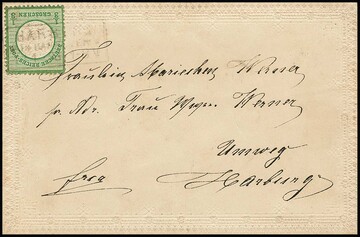 Fräulein Mariechen Werner
pr. Adr. Frau Wwe. Werner
Umweg
frco Harburg